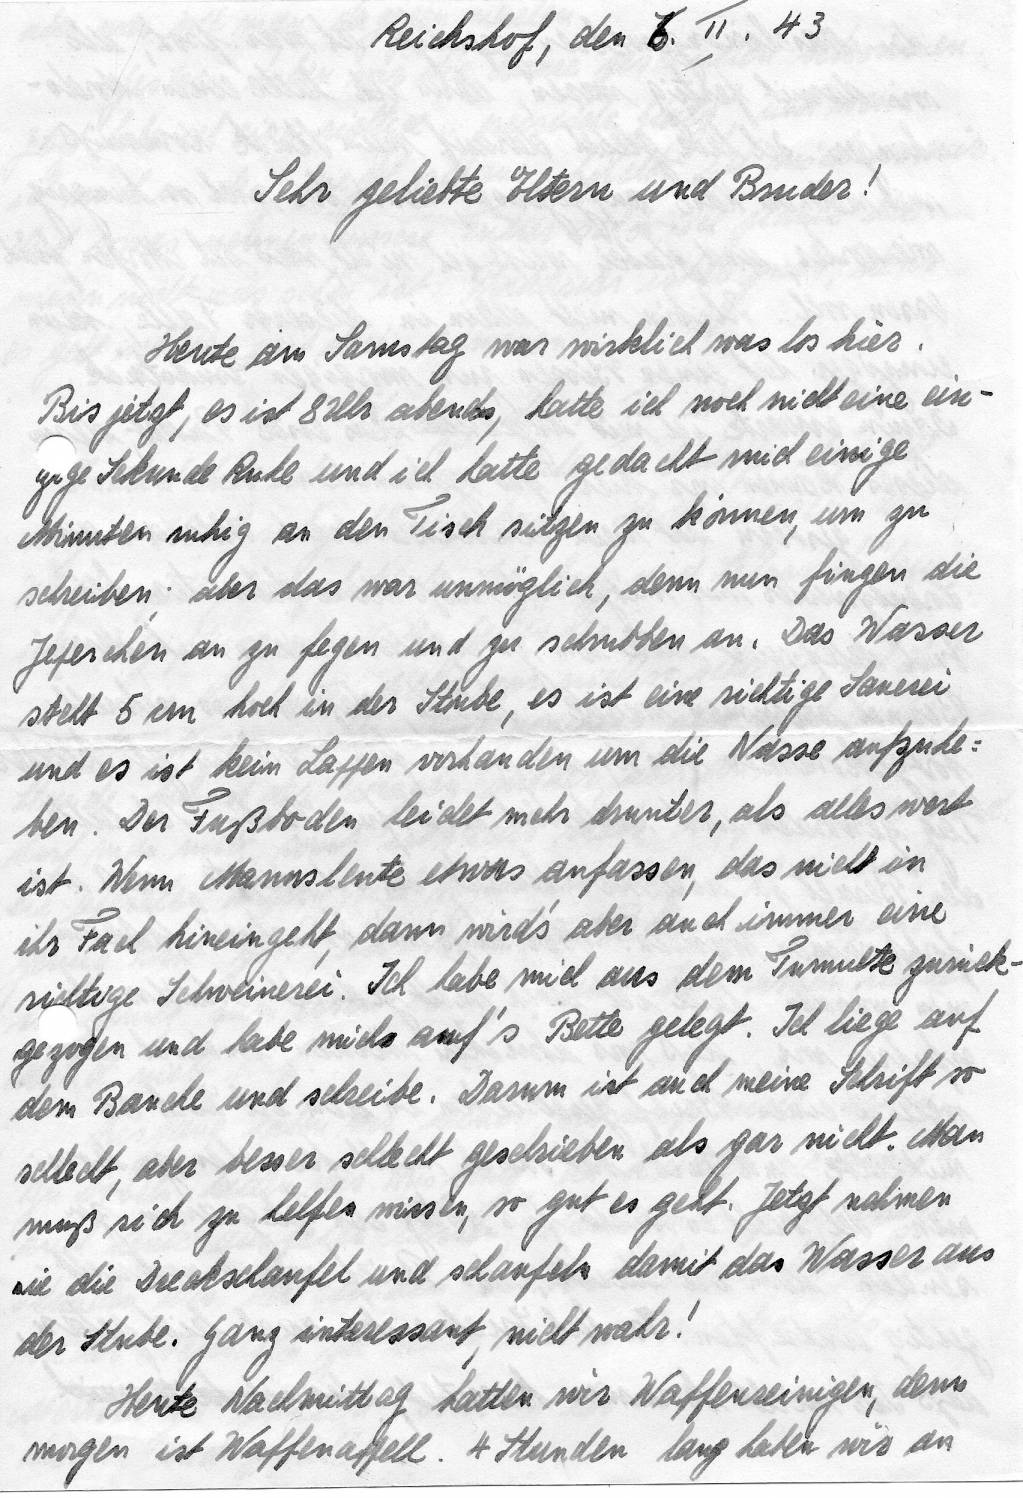 Reichshof, den 6. II. 43
Sehr geliebte Eltern und Bruder!
Heute am Samstag war wirklich was los hier.
Bis jetzt, es ist 8 Uhr abends, hatte ich noch nicht eine ein-
zige Sekunde Ruhe und ich hatte gedacht mich einige
Minuten ruhig an den Tisch sitzen zu können, um zu
schreiben; aber das war unmöglich, denn nun fingen die
an zu fegen und zu schrubben an. Das Wasser
steht 5 cm hoch in der Stube, es ist eine richtige Sauerei
und es ist kein Lappen vorhanden um die Nässe aufzuhe=
ben. Der Fußboden leidet mehr drunter, als alles wert
ist. Wenn Mannsleute etwas anfassen, das nicht in
ihr Fach hineingeht, dann wird's aber auch immer eine
richtige Schweinerei. Ich habe mich aus dem Tumulte zurück-
gezogen und habe mich auf's Bette gelegt. Ich liege auf
dem Bauche und schreibe. Darum ist auch meine Schrift so
schlecht, aber besser schlecht geschrieben als gar nicht. Man
muß sich zu helfen wissen, so gut es geht. Jetzt nehmen
sie die Dreckschaufel und schaufeln damit das Wasser aus
der Stube. Ganz interessant, nicht wahr!
Heute Nachmittag hatten wir Waffenreinigen, denn
morgen ist Waffenappell. 4 Stunden lang haben wir an